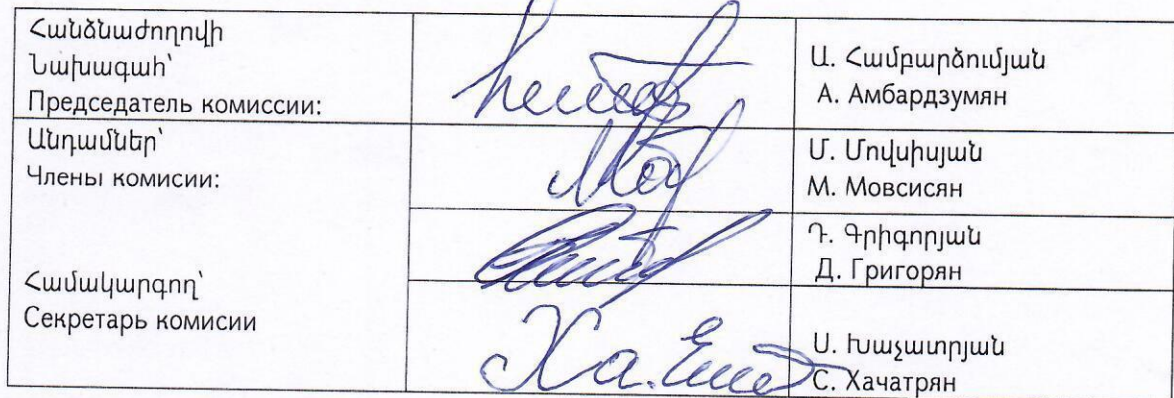 Հանձնաժողովի
Նախագահ՝
Председатель комиссии:
Ա. Համբարձումյան
А. Амбардзумян
Անդամներ՝
Члены комисии:
Մ. Մովսիսյան
М. Мовсисян
Դ. Գրիգորյան
Д. Григорян
Համակարգող՝
Секретарь комисии
Ս. Խաչատրյան
С. Хачатрян